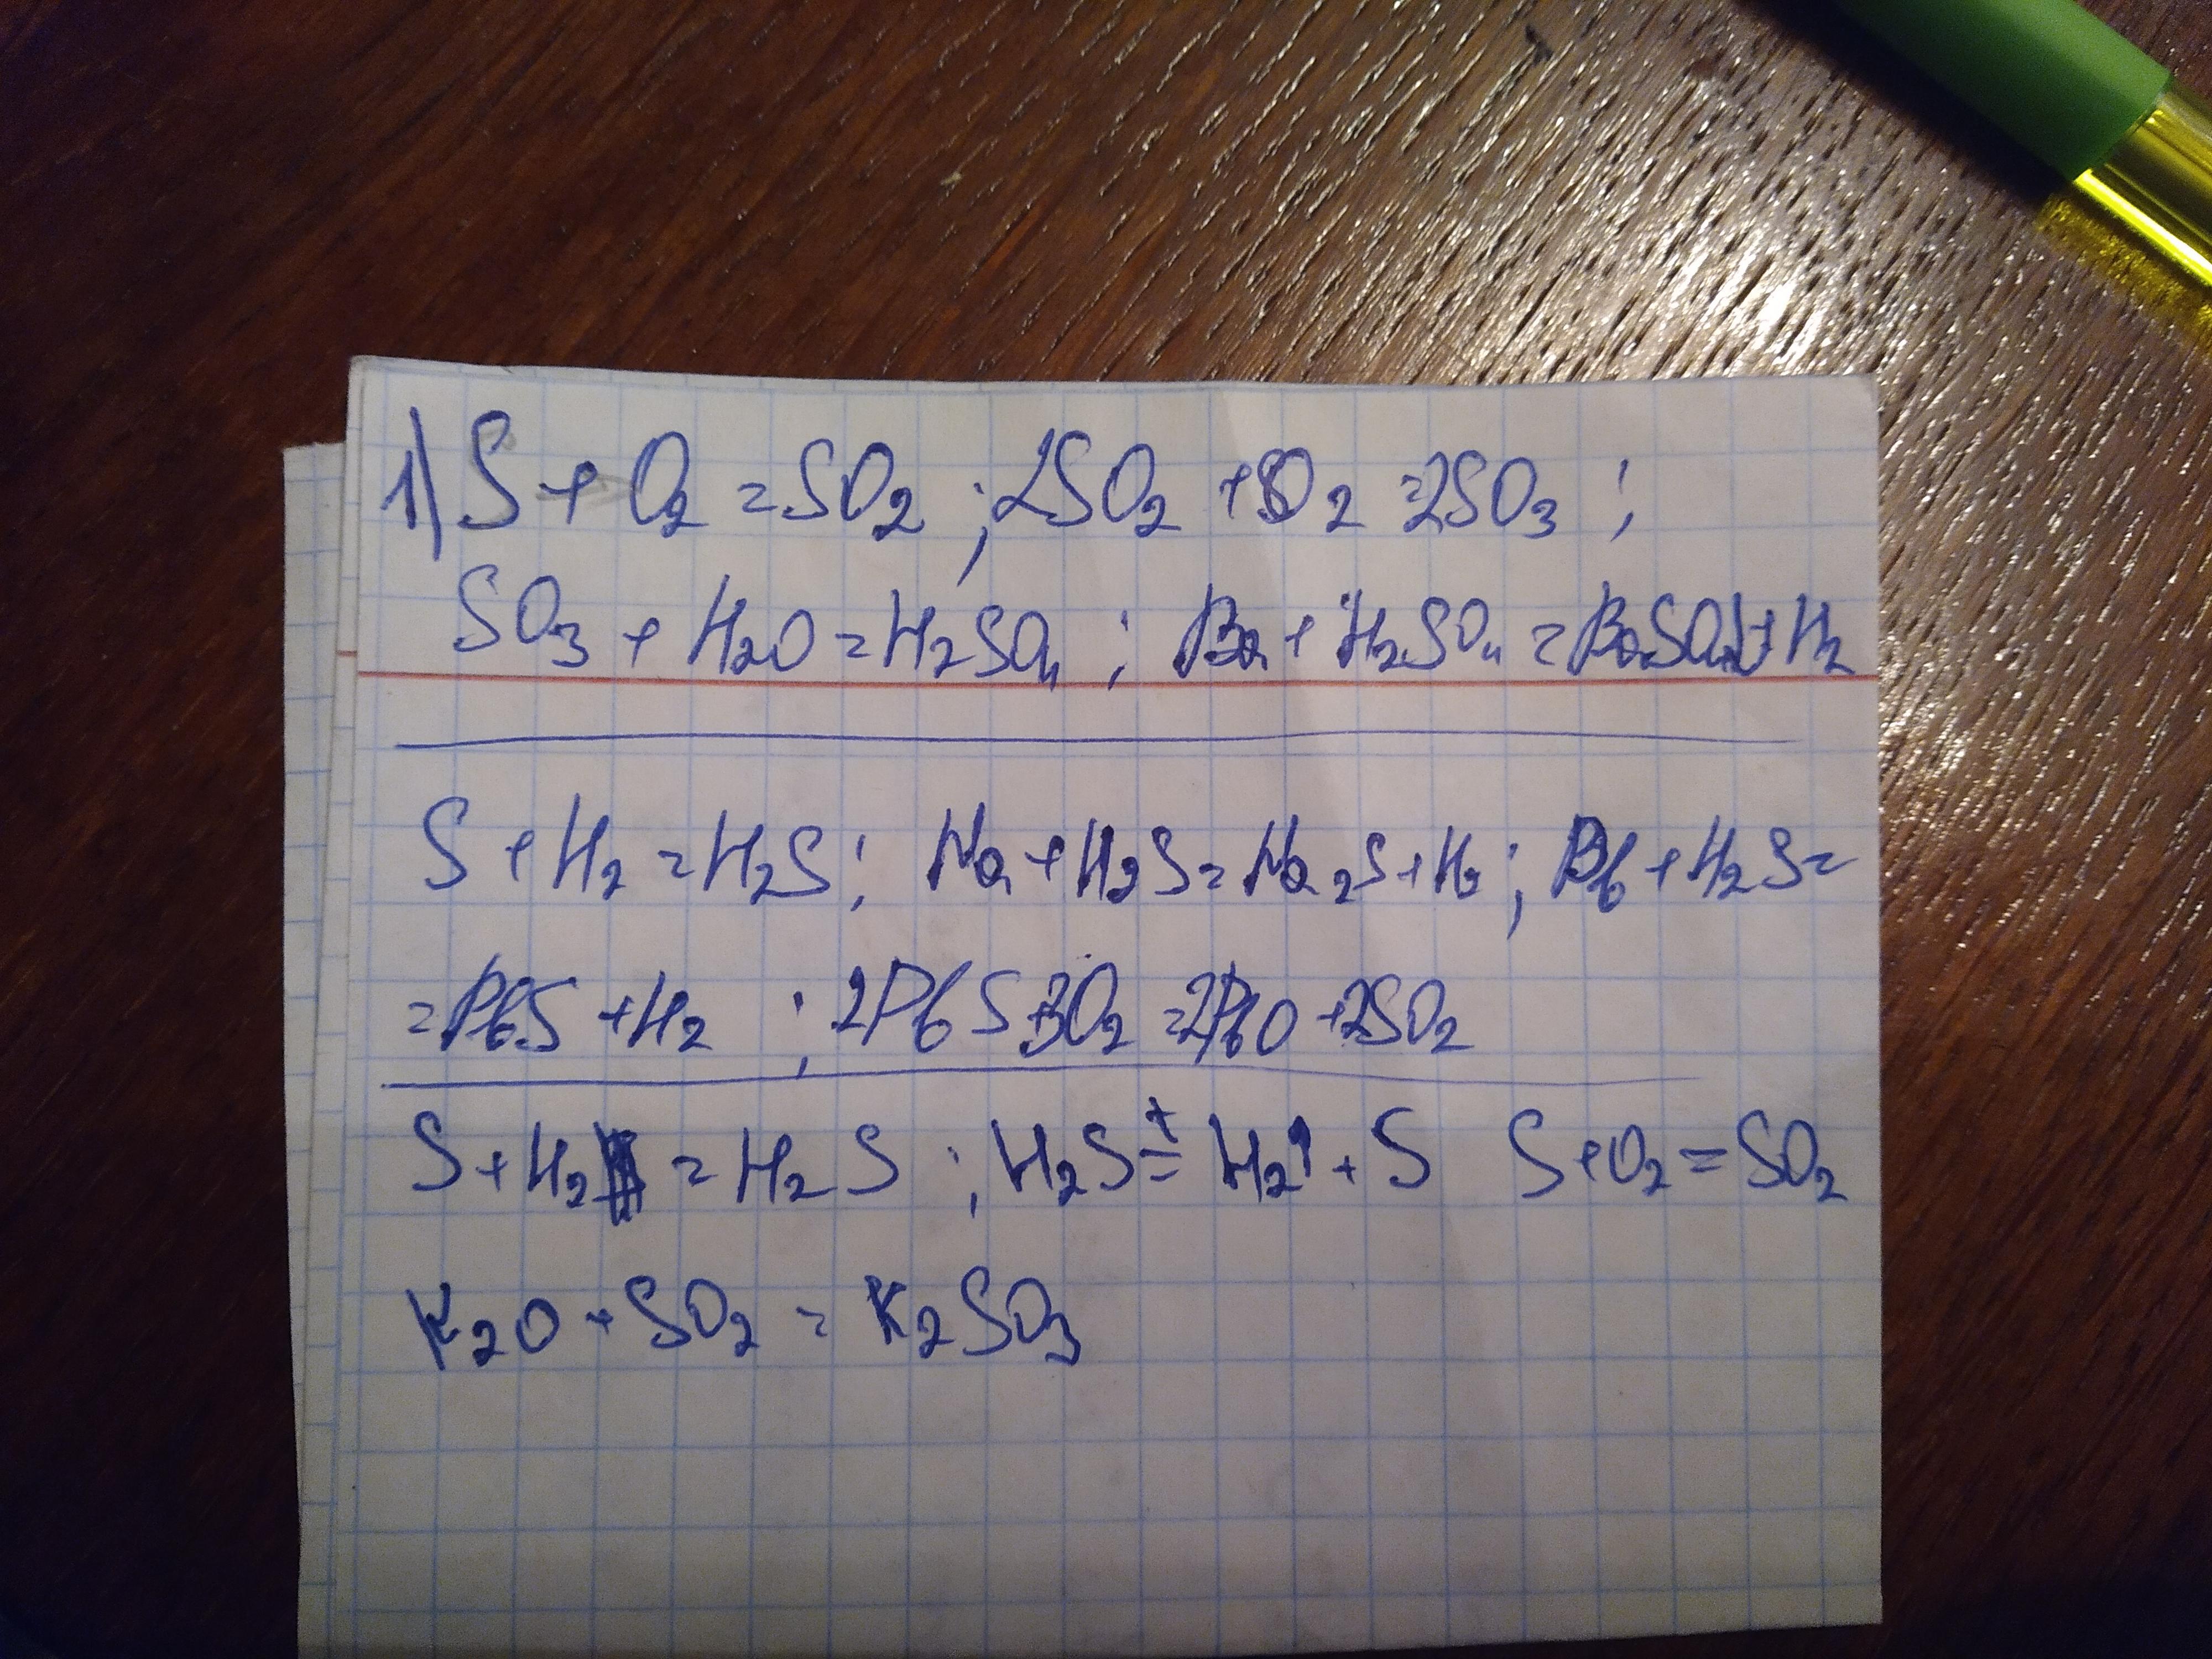 1) S + O₂ = SO₂ ; 2SO₂ + O₂ = 2SO₃ ;
SO₃ + H₂O = H₂SO₄ ; Ba + H₂SO₄ = BaSO₄↓ + H₂
S + H₂ = H₂S ; Na + H₂S = Na₂S + H₂ ; Pb + H₂S =
= PbS + H₂ ; 2PbS + 3O₂ = 2PbO + 2SO₂
S + H₂ = H₂S ; H₂S =ᵗ H₂↑ + S S + O₂ = SO₂
K₂O + SO₂ = K₂SO₃